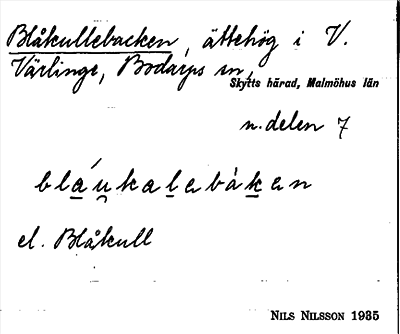 Blåkullebacken, ättehög i V.
Värlinge, Bodarps sn,
Skytts härad, Malmöhus län
n. delen 7
bláukalebàken
el. Blåkull
NILS NILSSON 1935